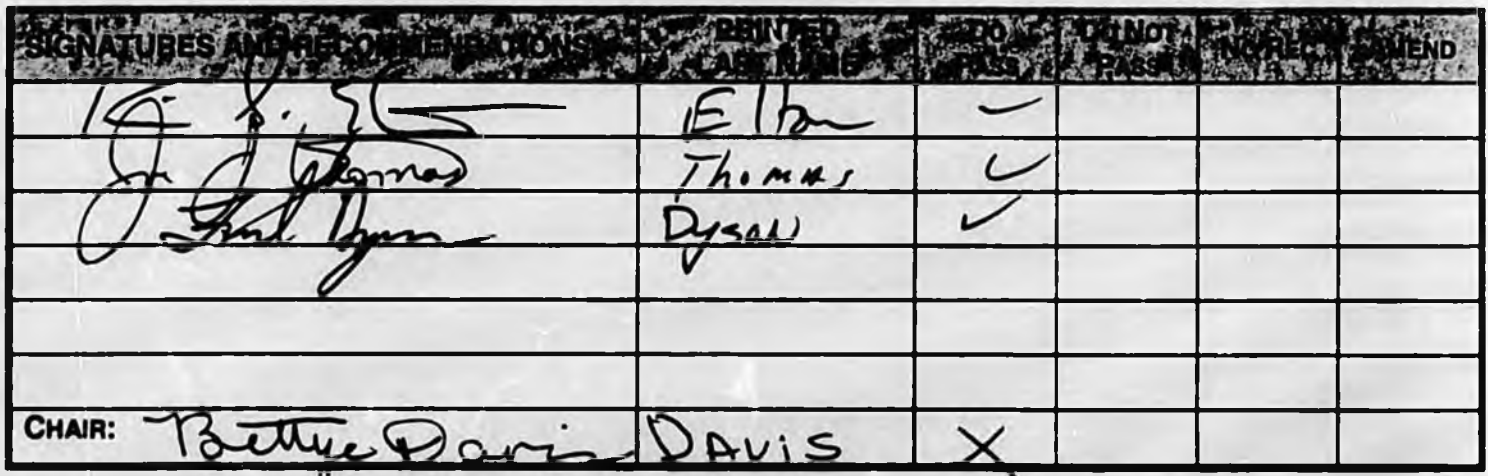 SIGNATURES AND RECOMMENDATIONS PRINTED LAST NAME DO PASS DO NOT PASS NO REC AMEND
Elton ✓
Thomas Thomas ✓
Fred Dyson Dyson ✓
CHAIR: Bettye Davis DAVIS X